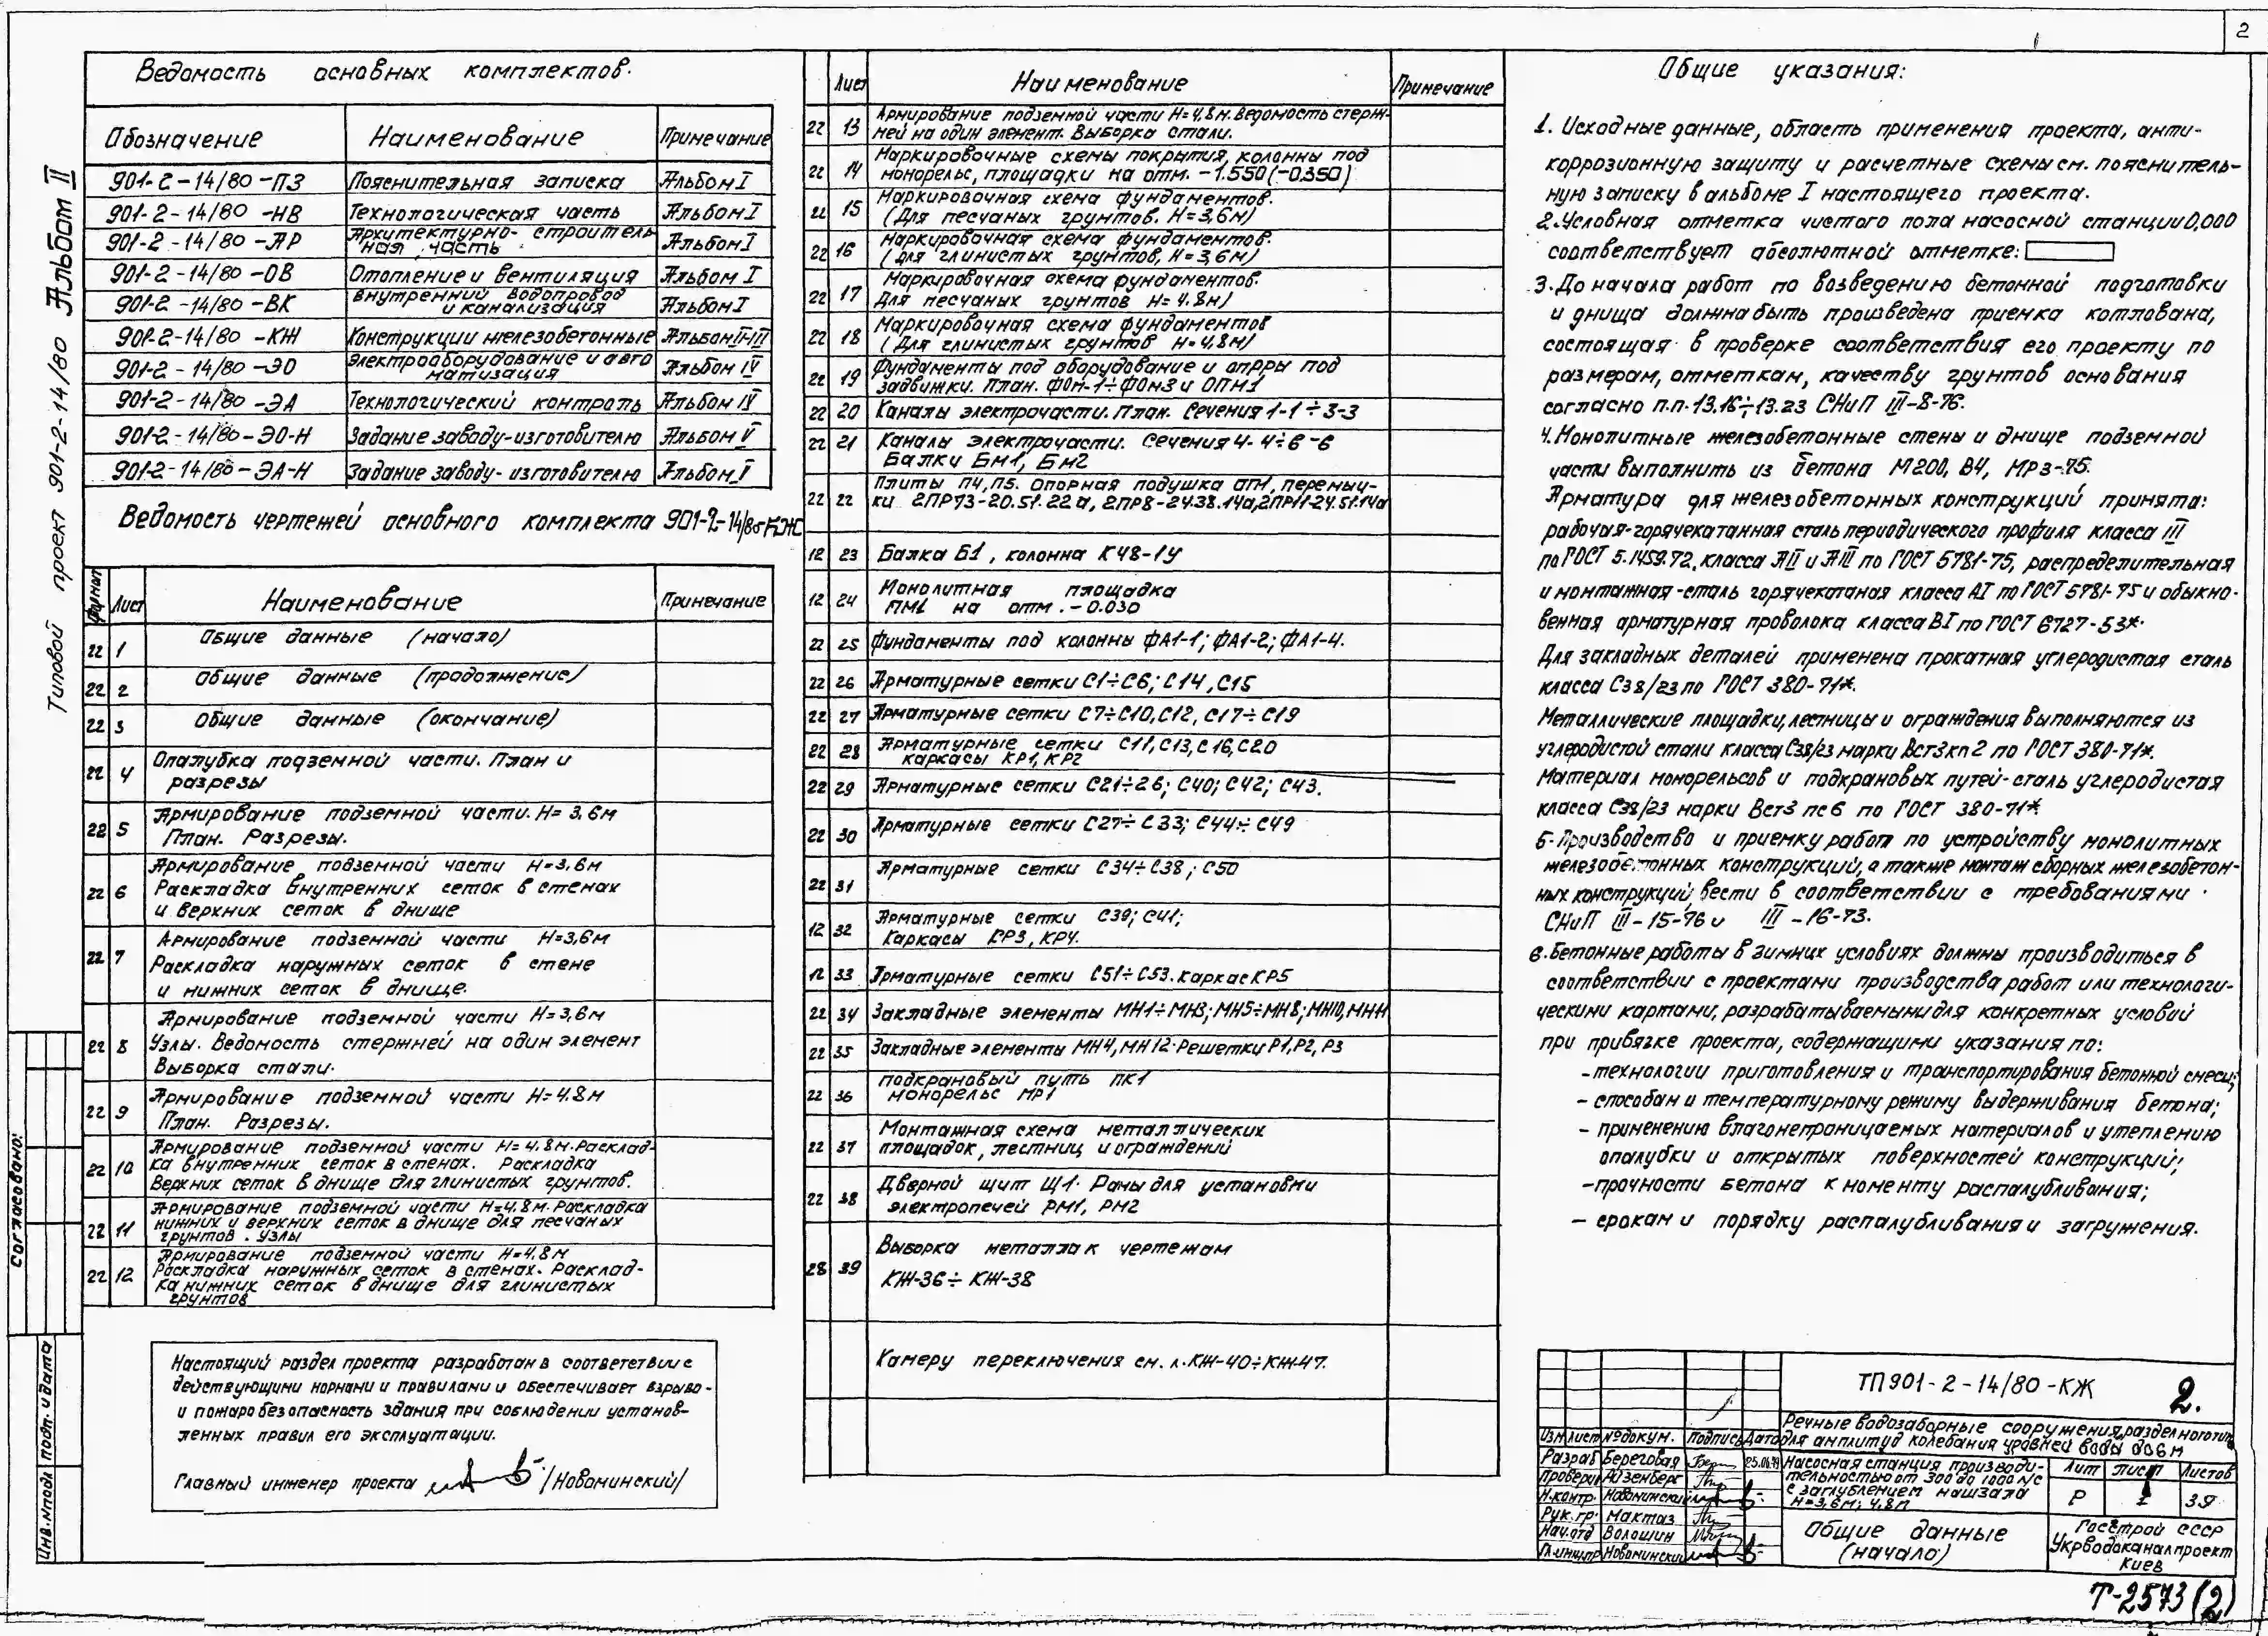 2
Типовой проект 901-2-14/80 Альбом II
Ведомость основных комплектов.
Обозначение Наименование Примечание
901-2-14/80-ПЗ Пояснительная записка Альбом I
901-2-14/80-НВ Технологическая часть Альбом I
901-2-14/80-АР Архитектурно-строитель
ная часть Альбом I
901-2-14/80-ОВ Отопление и вентиляция Альбом I
901-2-14/80-ВК Внутренний водопровод
и канализация Альбом I
901-2-14/80-КЖ Конструкции железобетонные Альбом II-III
901-2-14/80-ЭО Электрооборудование и авто
матизация Альбом IV
901-2-14/80-ЭА Технологический контроль Альбом IV
901-2-14/80-ЭО-Н Задание заводу-изготовителю Альбом V
901-2-14/80-ЭА-Н Задание заводу-изготовителю Альбом V
Ведомость чертежей основного комплекта 901-2-14/80-КЖ
Формат Лист Наименование Примечание
22 1 Общие данные (начало)
22 2 Общие данные (продолжение)
22 3 Общие данные (окончание)
22 4 Опалубка подземной части. План и
разрезы
22 5 Армирование подземной части. Н=3,6м
План. Разрезы.
22 6 Армирование подземной части Н=3,6м
Раскладка внутренних сеток в стенах
и верхних сеток в днище
22 7 Армирование подземной части Н=3,6м
Раскладка наружных сеток в стене
и нижних сеток в днище.
22 8 Армирование подземной части Н=3,6м
Узлы. Ведомость стержней на один элемент
Выборка стали.
22 9 Армирование подземной части Н=4.8м
План. Разрезы.
22 10 Армирование подземной части Н=4.8м. Расклад-
ка внутренних сеток в стенах. Раскладка
Верхних сеток в днище для глинистых грунтов.
22 11 Армирование подземной части Н=4.8м. Раскладка
нижних и верхних сеток в днище для песчаных
грунтов. Узлы
22 12 Армирование подземной части Н=4,8м
Раскладка наружных сеток в стенах. Расклад-
ка нижних сеток в днище для глинистых
грунтов
Настоящий раздел проекта разработан в соответствии с
действующими нормами и правилами и обеспечивает взрыво-
и пожаробезопасность здания при соблюдении установ-
ленных правил его эксплуатации.
Главный инженер проекта /Новоминский/
Согласовано:
Инв.№подл. подп. и дата
Лист Наименование Примечание
22 13 Армирование подземной части Н=4,8м. Ведомость стерж-
ней на один элемент. Выборка стали.
22 14 Маркировочные схемы покрытия, колонны под
монорельс, площадки на отм. -1.550(-0.350)
22 15 Маркировочная схема фундаментов.
(Для песчаных грунтов. Н=3,6м)
22 16 Маркировочная схема фундаментов.
(Для глинистых грунтов, Н=3,6м)
22 17 Маркировочная схема фундаментов.
Для песчаных грунтов Н=4.8м)
22 18 Маркировочная схема фундаментов
(Для глинистых грунтов Н=4,8м)
22 19 Фундаменты под оборудование и опоры под
задвижки. План. ФОм-1÷ФОм3 и ОПМ1
22 20 Каналы электрочасти. План. Сечения 1-1÷3-3
22 21 Каналы электрочасти. Сечения 4-4÷6-6
Балки БМ1, БМ2
22 22 Плиты П4, П5. Опорная подушка ОП1, перемыч-
ки 2ПР73-20.51.22а, 2ПР8-24.38.14а, 2ПР11-24.51.14а
12 23 Балка Б1, колонна К48-1У
12 24 Монолитная площадка
ПМ1 на отм. -0.030
22 25 Фундаменты под колонны ФА1-1; ФА1-2; ФА1-4.
22 26 Арматурные сетки С1÷С6; С14, С15
22 27 Арматурные сетки С7÷С10, С12, С17÷С19
22 28 Арматурные сетки С11, С13, С16, С20
каркасы КР1, КР2
22 29 Арматурные сетки С21÷26; С40; С42; С43.
22 30 Арматурные сетки С27÷С33; С44÷С49
22 31 Арматурные сетки С34÷С38; С50
12 32 Арматурные сетки С39; С41;
Каркасы КР3, КР4.
12 33 Арматурные сетки С51÷С53. Каркас КР5
22 34 Закладные элементы МН1÷МН3; МН5÷МН8; МН10, МН11
22 35 Закладные элементы МН4, МН12. Решетки Р1, Р2, Р3
22 36 подкрановый путь ПК1
монорельс МР1
22 37 Монтажная схема металлических
площадок, лестниц и ограждений
22 38 Дверной щит Щ1. Рамы для установки
электропечей РМ1, РМ2
28 39 Выборка металла к чертежам
КЖ-36÷КЖ-38
Камеру переключения см. л. КЖ-40÷КЖ47.
Общие указания:
1. Исходные данные, область применения проекта, анти-
коррозионную защиту и расчетные схемы см. пояснитель-
ную записку в альбоме I настоящего проекта.
2. Условная отметка чистого пола насосной станции 0,000
соответствует абсолютной отметке:
3. До начала работ по возведению бетонной подготовки
и днища должна быть произведена приемка котлована,
состоящая в проверке соответствия его проекту по
размерам, отметкам, качеству грунтов основания
согласно п.п. 13.16÷13.23 СНиП III-8-76.
4. Монолитные железобетонные стены и днище подземной
части выполнить из бетона М200, В4, МРз-75.
Арматура для железобетонных конструкций принята:
рабочая-горячекатанная сталь периодического профиля класса III
по ГОСТ 5.1459.72, класса АII и АIII по ГОСТ 5781-75, распределительная
и монтажная-сталь горячекатаная класса АI по ГОСТ 5781-75 и обыкно-
венная арматурная проволока класса ВI по ГОСТ 6727-53*.
Для закладных деталей применена прокатная углеродистая сталь
класса С38/23 по ГОСТ 380-71*.
Металлические площадки, лестницы и ограждения выполняются из
углеродистой стали класса С38/23 марки Вст3кп2 по ГОСТ 380-71*.
Материал монорельсов и подкрановых путей-сталь углеродистая
класса С38/23 марки Вст3 пс6 по ГОСТ 380-71*
5. Производство и приемку работ по устройству монолитных
железобетонных конструкций, а также монтаж сборных железобетон-
ных конструкций, вести в соответствии с требованиями
СНиП III-15-76 и III-16-73.
6. Бетонные работы в зимних условиях должны производиться в
соответствии с проектами производства работ или технологи-
ческими картами, разрабатываемыми для конкретных условий
при привязке проекта, содержащими указания по:
-технологии приготовления и транспортирования бетонной смеси;
- способам и температурному режиму выдерживания бетона;
- применению влагонепроницаемых материалов и утеплению
опалубки и открытых поверхностей конструкций;
-прочности бетона к моменту распалубливания;
- срокам и порядку распалубливания и загружения.
ТП901-2-14/80-КЖ 2.
Речные водозаборные сооружения раздельного типа
для амплитуд колебания уровней воды до 6м
Изм Лист №докум. Подпись Дата
Разраб Береговая 25.06.79
Проверил Айзенберг
Н.контр. Новоминский
Рук.гр. Мактаз
Нач.отд Волошин
Гл.инж.пр Новоминский
Насосная станция производи-
тельностью от 300 до 1000 л/с
с заглублением машзала
Н=3,6м; 4,8м
Лит Лист Листов
Р 1 39
Общие данные
(начало)
Госстрой СССР
Укрводоканалпроект
Киев
Т-2573(2)